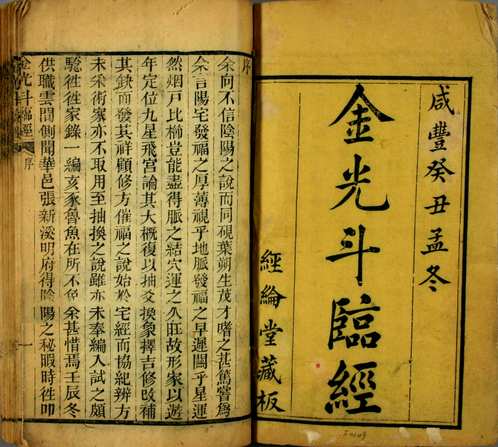 咸豐癸丑孟冬
金光斗臨經
經綸堂藏板
序
余向不信陰陽之說而同硯葉朔生茂才嗜之甚篤嘗爲
余言陽宅發福之厚薄視乎地脈發福之早遲關乎星運
然烟戸比櫛豈能盡得脈之結穴運之久旺故形家以遊
年定位九星飛宮論其大概復以抽爻換象擇吉修改補
其缺而發其祥顧修方催福之說始於宅經而協紀辨方
未采術家亦不取用至抽換之說雖亦未奉編入試之頗
驗徃徃家錄一編亥豕魯魚在所不免余甚惜焉壬辰冬
供職雲間側聞華邑張新溪明府得陰陽之秘暇時徃叩
金光斗臨經 序 一